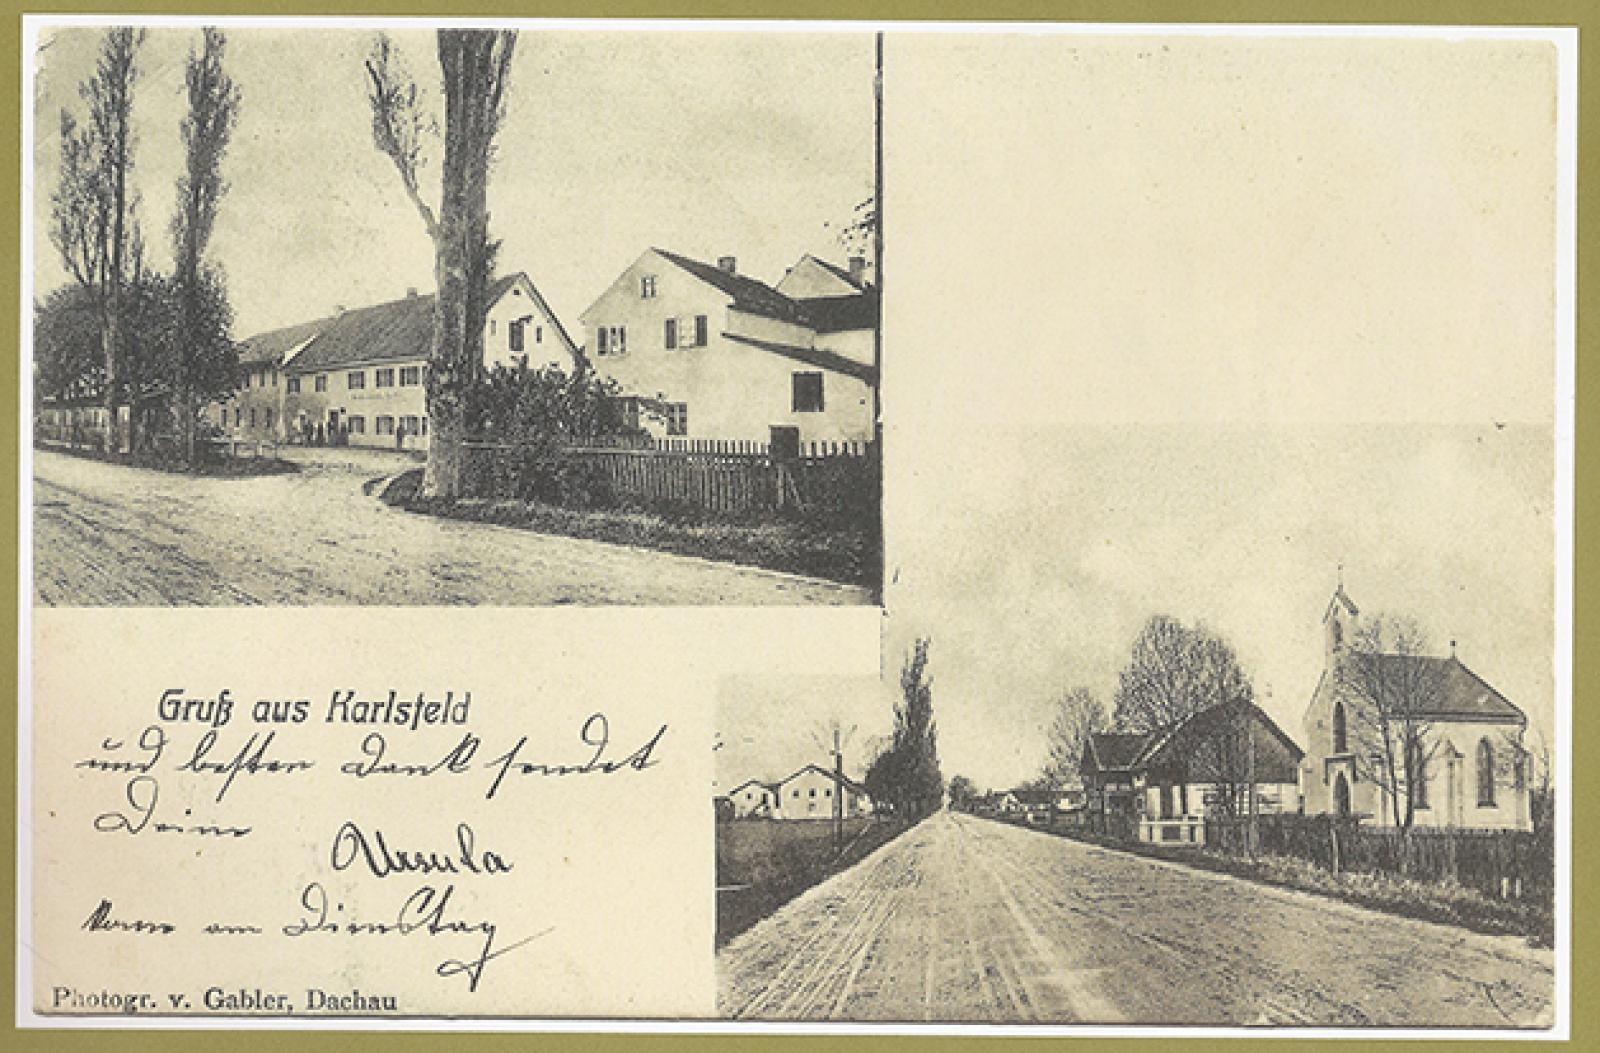 Gruß aus Karlsfeld
und besten Dank sendet
Deine
Ursula
komme am Dienstag
Photogr. v. Gabler, Dachau